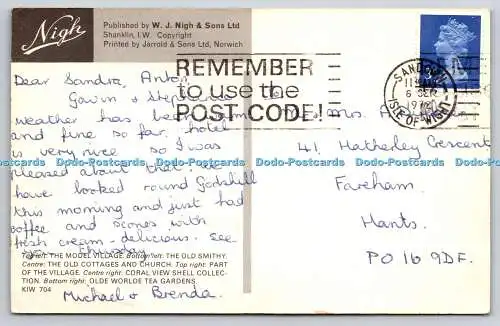 Nigh
Published by W. J. Nigh & Sons Ltd
Shanklin, I.W. Copyright
Printed by Jarrold & Sons Ltd, Norwich
REMEMBER
to use the
POST CODE!
SANDOWN
11 AM
6 SEP
ISLE OF WIGHT
Dear Sandra, Anton
Gavin & Stephanie
weather has been warm
and fine so far, hotel
is very nice so I was
pleased about that. We
have looked round Godshill
this morning and just had
coffee and scones with
fresh cream - delicious. See
Thursday
Michael & Brenda.
Mr & Mrs. A
41, Hatherley Crescent
Fareham,
Hants.
PO16 9DF.
Dodo-Postcards Dodo-Postcards Dodo-Postcards Dodo-Postcards Dodo-Postcards Dodo-Postcards
Top left: THE MODEL VILLAGE. Bottom left: THE OLD SMITHY.
Centre: THE OLD COTTAGES AND CHURCH. Top right: PART
OF THE VILLAGE. Centre right: CORAL VIEW SHELL COLLEC-
TION. Bottom right: OLDE WORLDE TEA GARDENS.
KIW 704